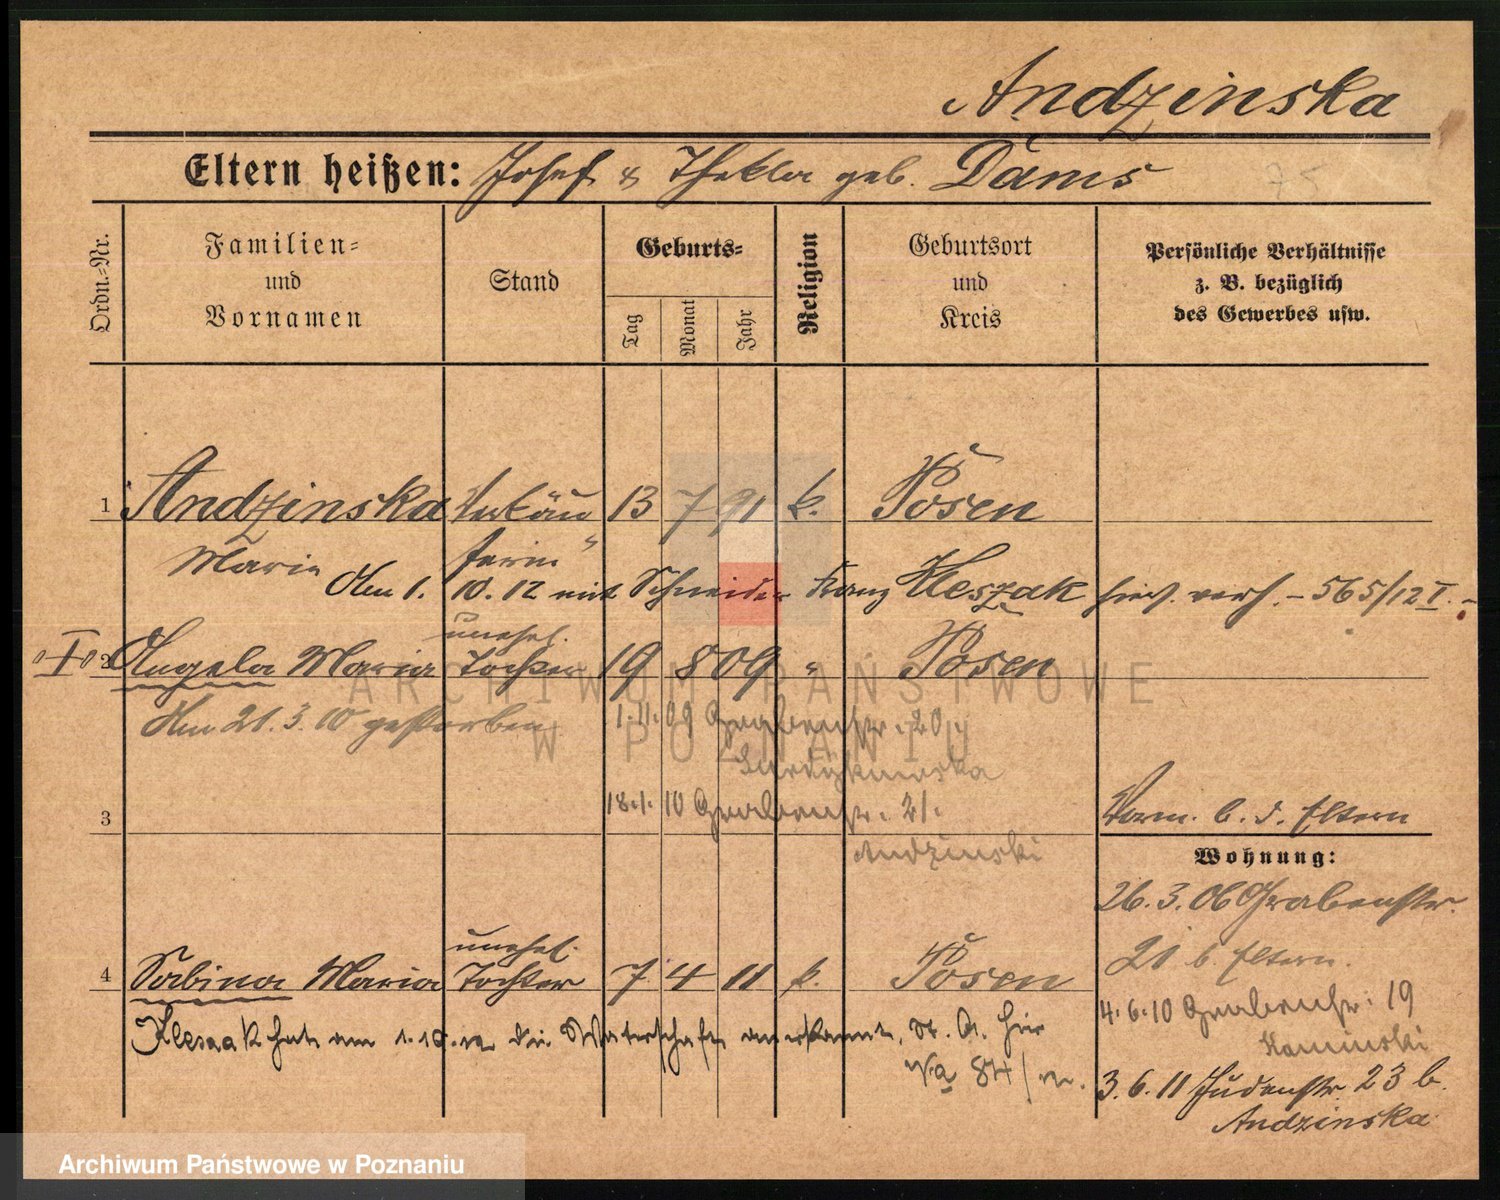 Andzinska
Eltern heißen: Josef & Thekla geb. Dams
75
Ordn.-Nr.
Familien- und Vornamen
Stand
Geburts-
Tag
Monat
Jahr
Religion
Geburtsort und Kreis
Persönliche Verhältnisse
z. B. bezüglich
des Gewerbes usw.
1 Andzinska Verkäu 13 7 91 k. Posen
Marie ferin
Am 1. 10. 12 mit Schneider Franz Kleszak hier verh. - 565/12 I. -
unehel.
I 2 Angela Maria Tochter 19 8 09 " Posen
ARCHIWUM PAŃSTWOWE
W POZNANIU
Am 21. 3. 10 gestorben
1.11.09 Grabenstr. 20
18.1.10 Grabenstr. 21.
Andzinski
3
Vorm. b. d. Eltern
Wohnung:
26. 3. 06 Grabenstr.
21 b. Eltern.
unehel.
4 Sabina Maria Tochter 7 4 11 k. Posen
4. 6. 10 Grabenstr. 19
Kaminski
Kleszak hat am 1.10.12 die Vaterschaft anerkannt, St. A. hier
V.a 84/12.
3. 6. 11 Judenstr. 23 b.
Andzinska
Archiwum Państwowe w Poznaniu